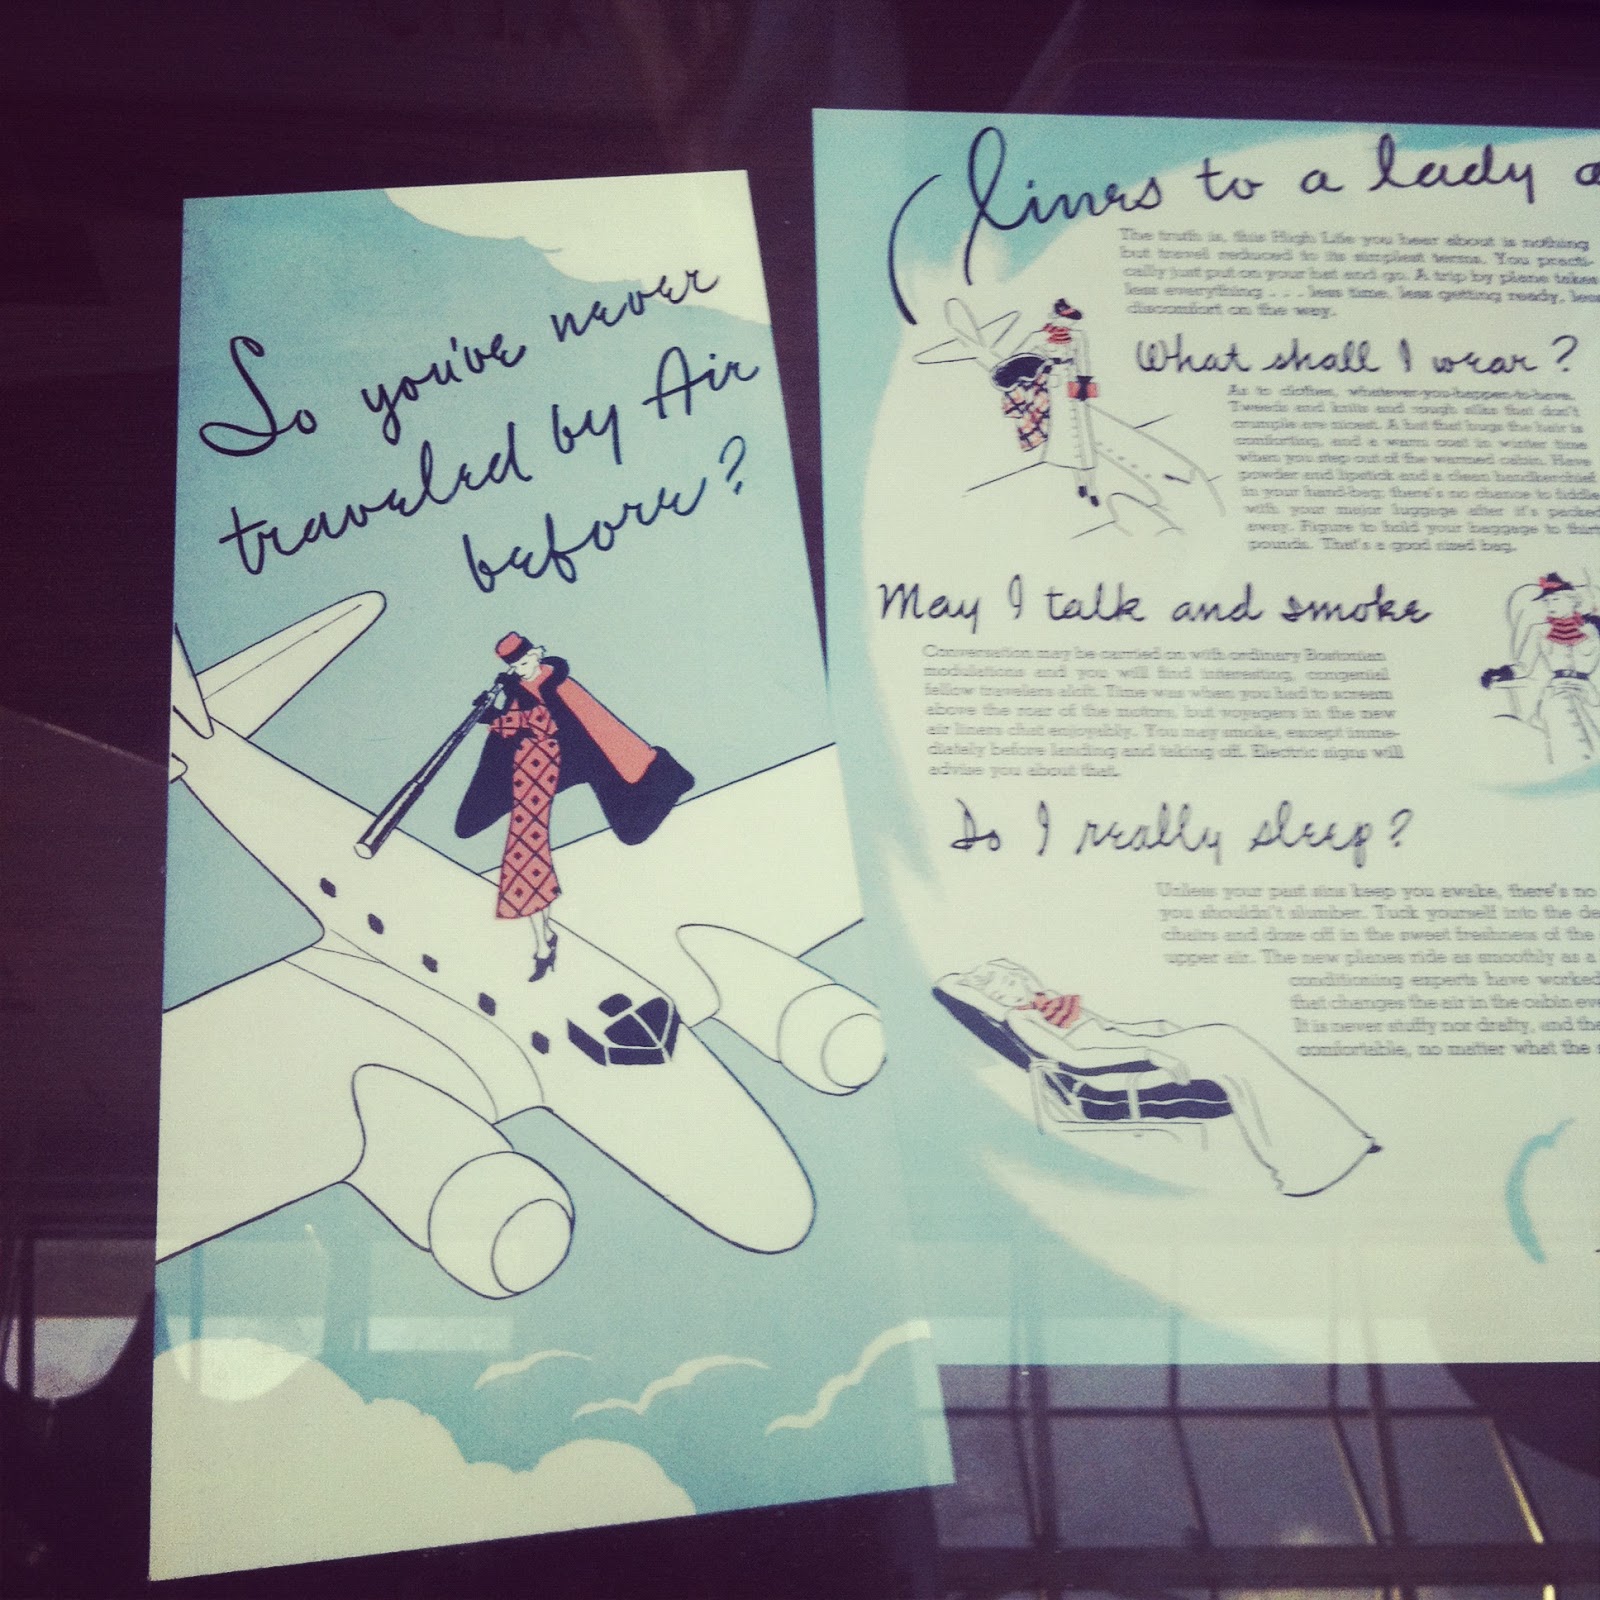 So you've never
traveled by Air
before?
lines to a lady
The truth is, this High Life you hear about is nothing
but travel reduced to its simplest terms. You practi-
cally just put on your hat and go. A trip by plane takes
less everything . . . less time, less getting ready, less
discomfort on the way.
What shall I wear?
As to clothes, whatever-you-happen-to-have.
Tweeds and knits and rough silks that don't
crumple are nicest. A hat that hugs the hair is
comforting, and a warm coat in winter time
when you step out of the warmed cabin. Have
powder and lipstick and a clean handkerchief
in your hand-bag; there's no chance to fiddle
with your major luggage after it's packed
away. Figure to hold your baggage to
pounds. That's a good sized bag.
May I talk and smoke
Conversation may be carried on with ordinary Bostonian
modulations and you will find interesting, congenial
fellow travelers aloft. Time was when you had to scream
above the roar of the motors, but voyagers in the new
air liners chat enjoyably. You may smoke, except imme-
diately before landing and taking off. Electric signs will
advise you about that.
Do I really sleep?
Unless your past sins keep you awake, there's no
you shouldn't slumber. Tuck yourself into the
chairs and doze off in the sweet freshness of the
upper air. The new planes ride as smoothly as a
conditioning experts have worked
that changes the air in the cabin
It is never stuffy nor drafty, and
comfortable, no matter what the